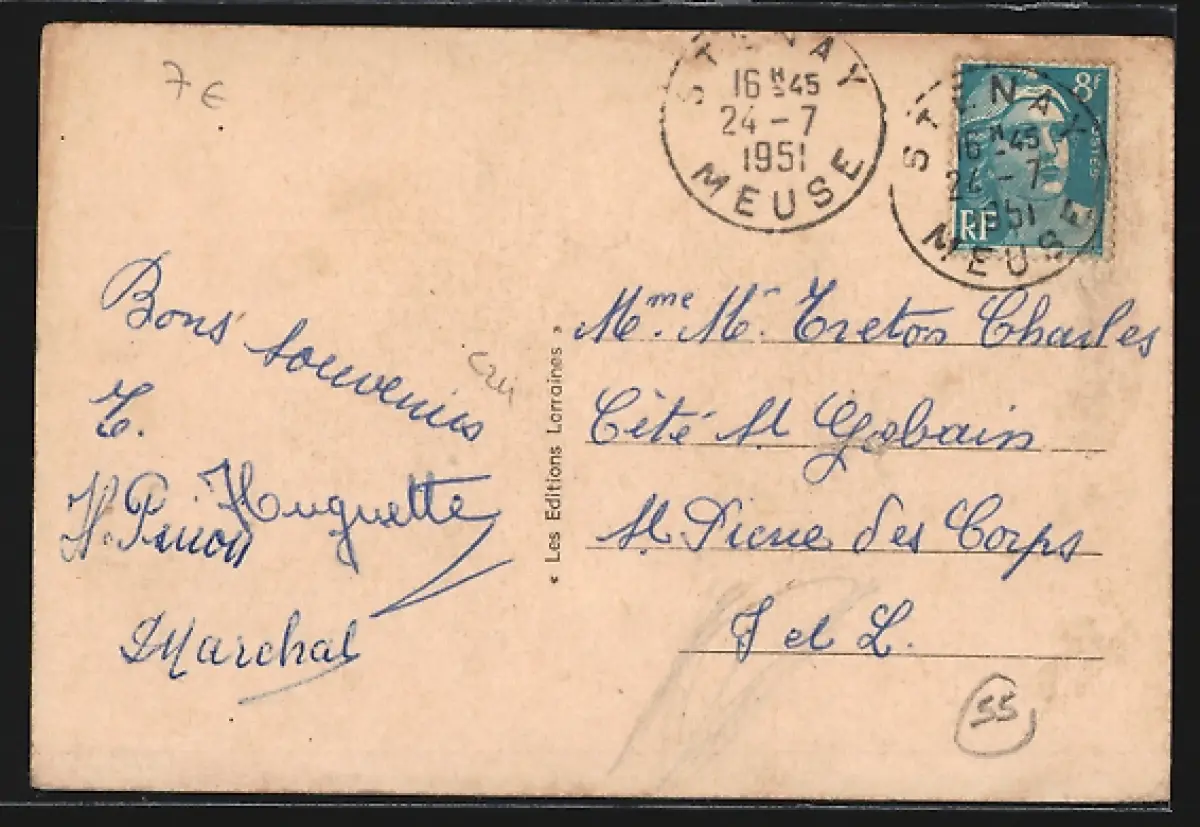 7 €
STENAY
16 H 45
24 - 7
1951
MEUSE
8F
POSTES
RF
STENAY
16 H 45
24 - 7
1951
MEUSE
Bons souvenirs
T.
Huguette
Marchal
« Les Editions Lorraines »
Mme. Mr. Treton Charles
Cité St Gobain
St Pierre des Corps
I et L.
55